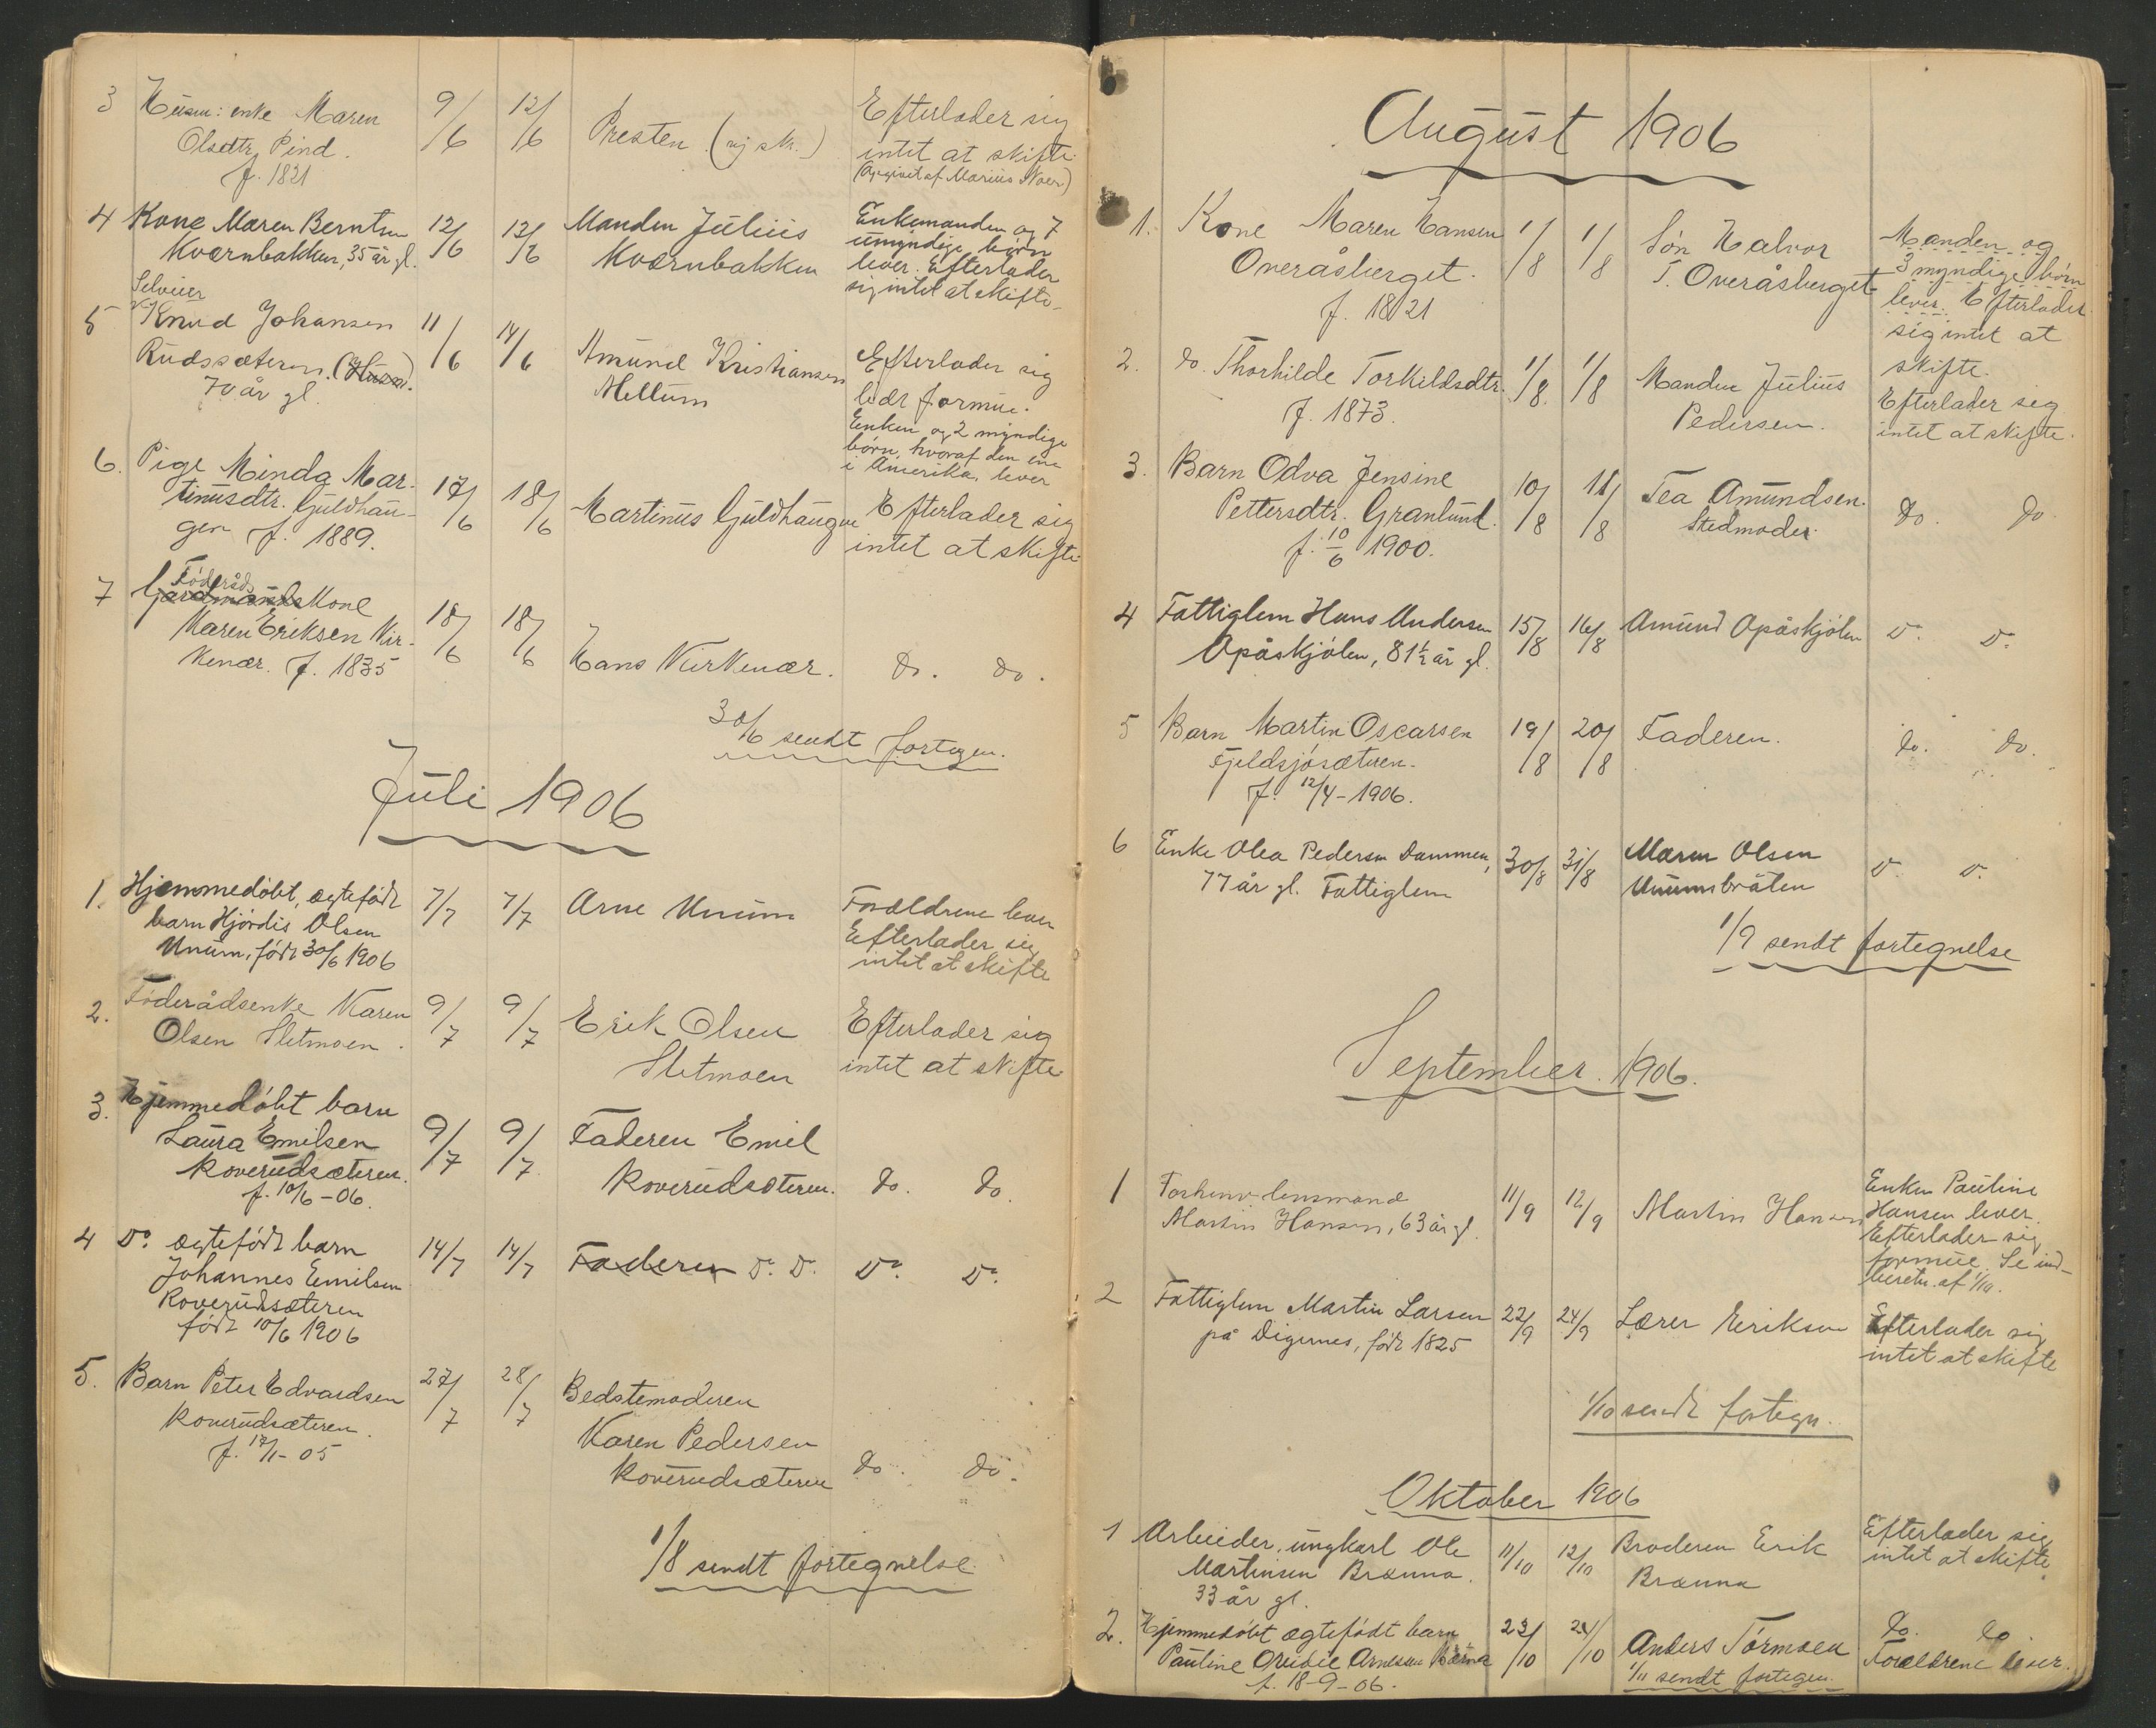 3 Husm: enke Maren 9/6 12/6 Presten (ej sk.) Efterlader sig
Olsdtr. Pind. intet at skifte.
f. 1821 (Opgivet af Marius Noer)
4 Kone Maren Berntsen 12/6 13/6 Manden Julius Enkemanden og 7
Kværnbakken, 35 år gl. Kværnbakken umyndige børn
lever. Efterlader
sig intet at skifte.
Selveier
5 Knud Johansen 11/6 14/6 Amund Kristiansen Efterlader sig
Rudssæteren. (Husm). Mellum lidt formue.
70 år gl. Enken og 2 myndige
børn, hvoraf den ene
i Amerika, lever
6. Pige Minda Mar- 17/6 18/6 Martinus Guldhaugen Efterlader sig
tinusdtr. Guldhau- intet at skifte
gen f. 1889.
Föderåds
7 Gardmands Kone 18/6 18/6 Hans Kirkenær. do. do.
Maren Eriksen Kir-
kenær. f. 1835
30/6 sendt fortegn.
Juli 1906
1. Hjemmedöbt, ægtefödt 7/7 7/7 Arne Unum Forældrene lever
barn Hjördis Olsen Efterlader sig
Unum, födt 30/6 1906 intet at skifte
2. Föderådsenke Karen 9/7 9/7 Erik Olsen Efterlader sig
Olsen Sletmoen. Sletmoen intet at skifte
3. Hjemmedöbt barn 9/7 9/7 Faderen Emil
Laura Emilsen Roverudsæteren. do. do.
Roverudsæteren.
f. 10/6 - 06.
4 Do. ægtefödt barn 14/7 14/7 Faderen Do. Do. Do. Do.
Johannes Emilsen
Roverudsæteren
födt 10/6 1906
5. Barn Peter Edvardsen 27/7 28/7 Bedstemoderen
Roverudsæteren. Karen Pedersen
f. - 05 Roverudsæteren do. do.
1/8 sendt fortegnelse
August 1906
1. Kone Maren Hansen 1/8 1/8 Sön Halvor Manden og
Overåsberget. T. Overåsberget 3 myndige börn
f. 1821 lever. Efterlader
sig intet at
skifte.
2. do. Thorhilde Torkildsdtr. 1/8 1/8 Manden Julius Efterlader sig
f. 1873. Pedersen. intet at skifte.
3. Barn Odva Jensine 10/8 11/8 Tea Amundsen. do. do
Pettersdtr. Granlund. Stedmoder
f. 10/6 1900.
4 Fattiglem Hans Andersen 15/8 16/8 Amund Opåskjölen Do. Do.
Opåskjölen, 81½ år gl.
5 Barn Martin Oscarsen 19/8 20/8 Faderen. do. do.
Fjeldsjösæteren.
f. 12/4 - 1906.
6 Enke Olea Pedersen Dammen, 30/8 31/8 Maren Olsen Do. Do.
77 år gl. Fattiglem Unumsbråten
1/9 sendt fortegnelse
September 1906.
1 Forhenv. lensmand 11/9 12/9 Martin Hansen Enken Pauline
Martin Hansen, 63 år gl. Hansen lever.
Efterlader sig
formue. Se ind-
beretn. af 1/10.
2 Fattiglem Martin Larsen 22/9 24/9 Lærer Eriksen Efterlader sig
på Digernes, födt 1825 intet at skifte
1/10 sendt fortegn.
Oktober 1906
1 Arbeider, ungkarl Ole 11/10 12/10 Broderen Erik Efterlader sig
Martinsen Brænna. Brænna intet at skifte.
33 år gl.
2. Hjemmedöbt ægtefödt barn 23/10 24/10 Anders Törmoen do. do
Pauline Arnesen Forældrene lever.
f. 18-9-06. 1/11 sendt fortegn.